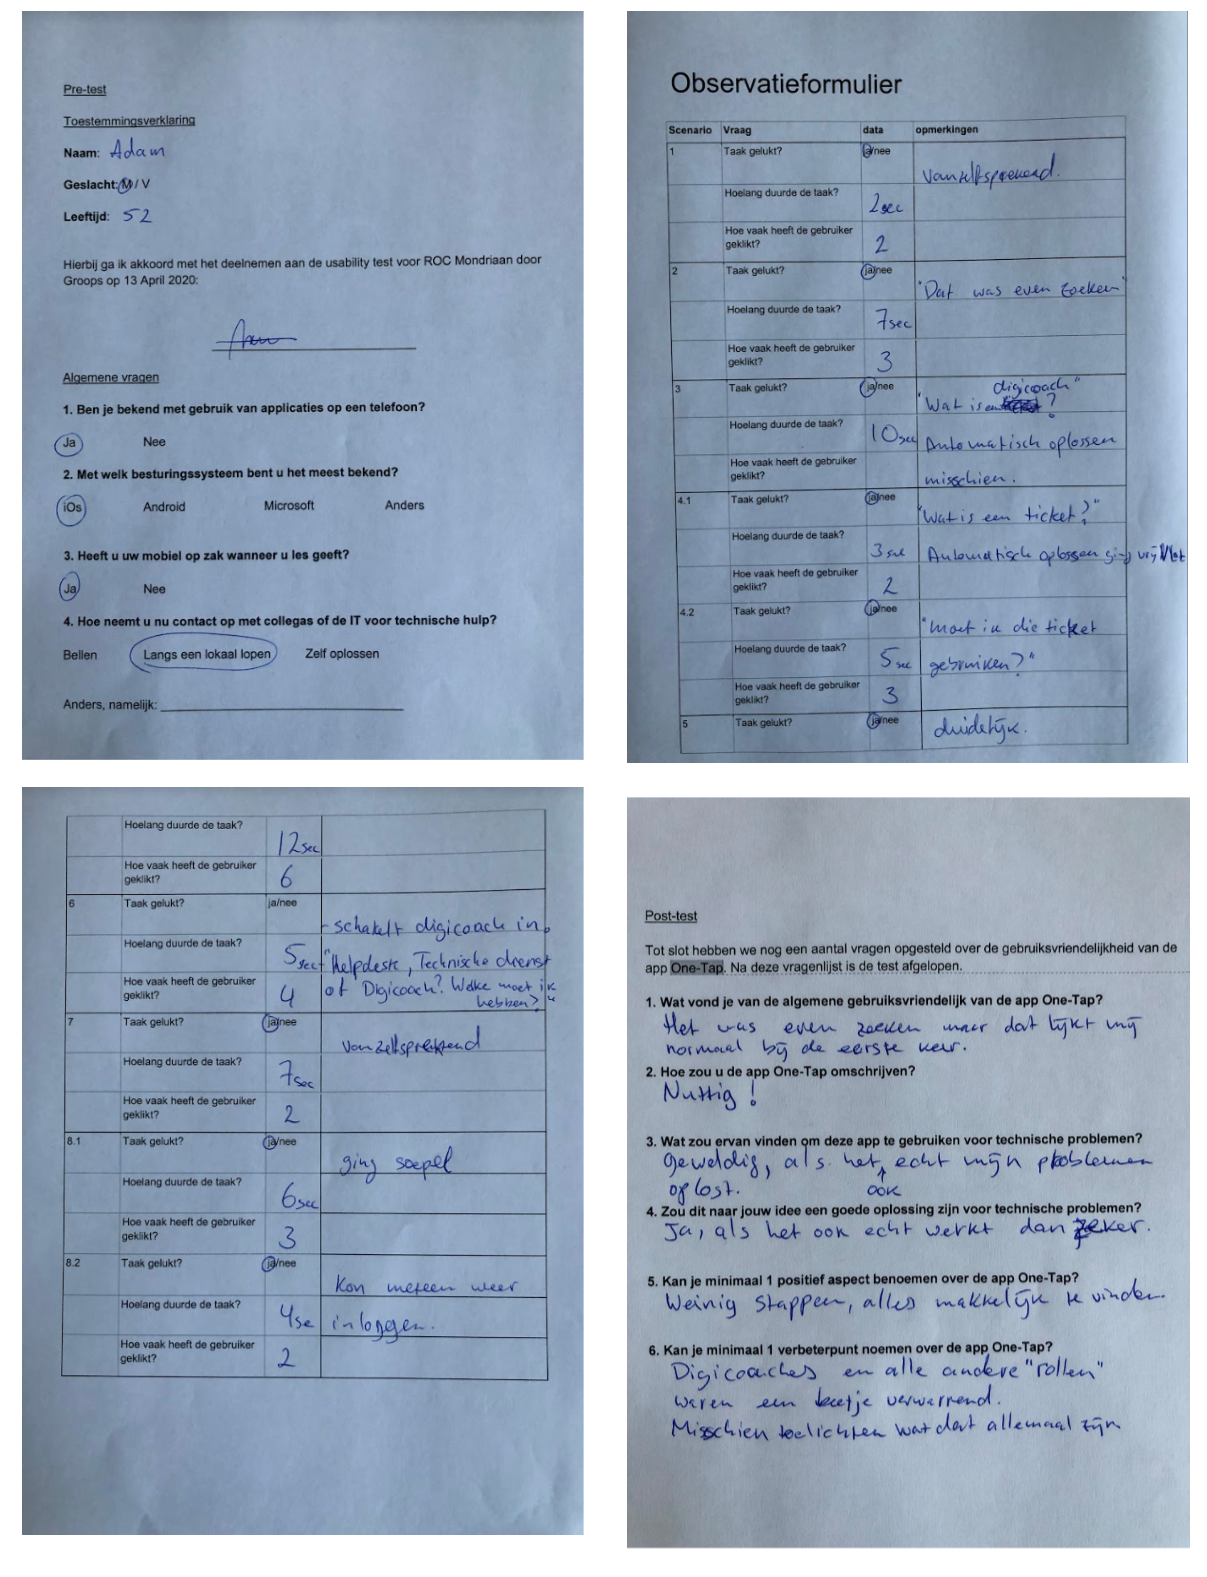 Pre-test
Toestemmingsverklaring
Naam: Adam
Geslacht: M / V
Leeftijd: 52
Hierbij ga ik akkoord met het deelnemen aan de usability test voor ROC Mondriaan door
Groops op 13 April 2020:
Algemene vragen
1. Ben je bekend met gebruik van applicaties op een telefoon?
Ja Nee
2. Met welk besturingssysteem bent u het meest bekend?
iOs Android Microsoft Anders
3. Heeft u uw mobiel op zak wanneer u les geeft?
Ja Nee
4. Hoe neemt u nu contact op met collegas of de IT voor technische hulp?
Bellen Langs een lokaal lopen Zelf oplossen
Anders, namelijk:
Observatieformulier
Scenario Vraag data opmerkingen
1 Taak gelukt? ja/nee
vanzelfsprekend.
Hoelang duurde de taak?
2sec
Hoe vaak heeft de gebruiker
geklikt? 2
2 Taak gelukt? ja/nee
"Dat was even zoeken"
Hoelang duurde de taak?
7sec
Hoe vaak heeft de gebruiker
geklikt? 3
3 Taak gelukt? ja/nee digicoach"
"Wat is een ?
Hoelang duurde de taak?
10sec Automatisch oplossen
Hoe vaak heeft de gebruiker
geklikt? misschien.
4.1 Taak gelukt? ja/nee
"Wat is een ticket?"
Hoelang duurde de taak?
3 sec Automatisch oplossen ging vrij vlot
Hoe vaak heeft de gebruiker
geklikt? 2
4.2 Taak gelukt? ja/nee
"moet ik die ticket
Hoelang duurde de taak?
5 sec gebruiken?"
Hoe vaak heeft de gebruiker
geklikt? 3
5 Taak gelukt? ja/nee duidelijk.
Hoelang duurde de taak?
12sec
Hoe vaak heeft de gebruiker
geklikt? 6
6 Taak gelukt? ja/nee
- schakelt digicoach in.
Hoelang duurde de taak?
5sec "Helpdesk, Technische dienst
Hoe vaak heeft de gebruiker
geklikt? 4 of Digicoach? Welke moet ik
hebben?"
7 Taak gelukt? ja/nee
vanzelfsprekend
Hoelang duurde de taak?
7sec
Hoe vaak heeft de gebruiker
geklikt? 2
8.1 Taak gelukt? ja/nee
ging soepel
Hoelang duurde de taak?
6sec
Hoe vaak heeft de gebruiker
geklikt? 3
8.2 Taak gelukt? ja/nee
Kon meteen weer
Hoelang duurde de taak?
4se inloggen.
Hoe vaak heeft de gebruiker
geklikt? 2
Post-test
Tot slot hebben we nog een aantal vragen opgesteld over de gebruiksvriendelijkheid van de
app One-Tap. Na deze vragenlijst is de test afgelopen.
1. Wat vond je van de algemene gebruiksvriendelijk van de app One-Tap?
Het was even zoeken maar dat lijkt mij
normaal bij de eerste keer.
2. Hoe zou u de app One-Tap omschrijven?
Nuttig !
3. Wat zou ervan vinden om deze app te gebruiken voor technische problemen?
Geweldig, als het echt mijn problemen
oplost. ook
4. Zou dit naar jouw idee een goede oplossing zijn voor technische problemen?
Ja, als het ook echt werkt dan zeker.
5. Kan je minimaal 1 positief aspect benoemen over de app One-Tap?
Weinig stappen, alles makkelijk te vinden.
6. Kan je minimaal 1 verbeterpunt noemen over de app One-Tap?
Digicoaches en alle andere "rollen"
waren een beetje verwarrend.
Misschien toelichten wat dat allemaal zijn